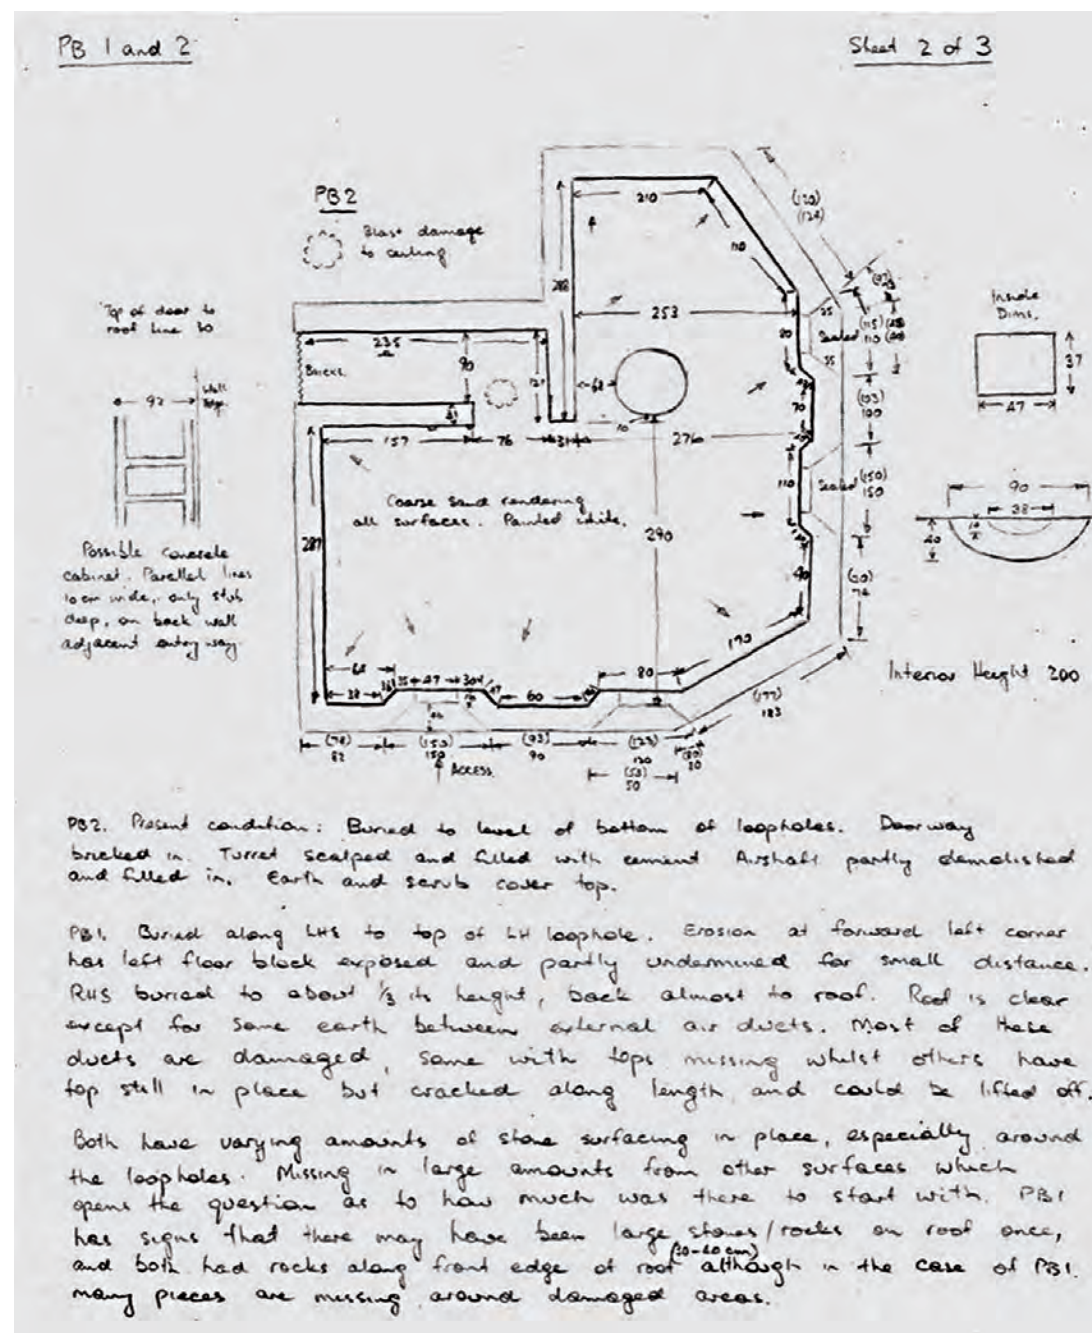 PB 1 and 2
Sheet 2 of 3
PB2
Blast damage
to ceiling
Top of door to
roof line 30
92
Wall
Possible concrete
cabinet. Parallel lines
10 cm wide, only stub
deep, on back wall
adjacent entry way.
Inside
Dims.
37
47
90
38
40
Interior Height 200
210
110
(120)
(124)
288
253
235
90
Bricks
157
76
31
276
Coarse sand rendering
all surfaces. Painted white.
287
290
80
70
110
90
170
Sealed
(115)
110
(103)
100
Sealed
(150)
150
74
(177)
183
38
35
47
30
60
80
(78)
82
(150)
150
(93)
90
(123)
120
(53)
50
ACCESS
PB2. Present condition: Buried to level of bottom of loopholes. Doorway
bricked in. Turret scalped and filled with cement Airshaft partly demolished
and filled in. Earth and scrub cover top.
PB1. Buried along LHS to top of LH loophole. Erosion at forward left corner
has left floor block exposed and partly undermined for small distance.
RHS buried to about 1/3 its height, back almost to roof. Roof is clear
except for some earth between external air ducts. Most of these
ducts are damaged, some with tops missing whilst others have
top still in place but cracked along length, and could be lifted off.
Both have varying amounts of stone surfacing in place, especially around
the loopholes. Missing in large amounts from other surfaces which
opens the question as to how much was there to start with. PB1
has signs that there may have been large stones/rocks on roof once,
and both had rocks along front edge of roof although in the case of PB1
many pieces are missing around damaged areas.